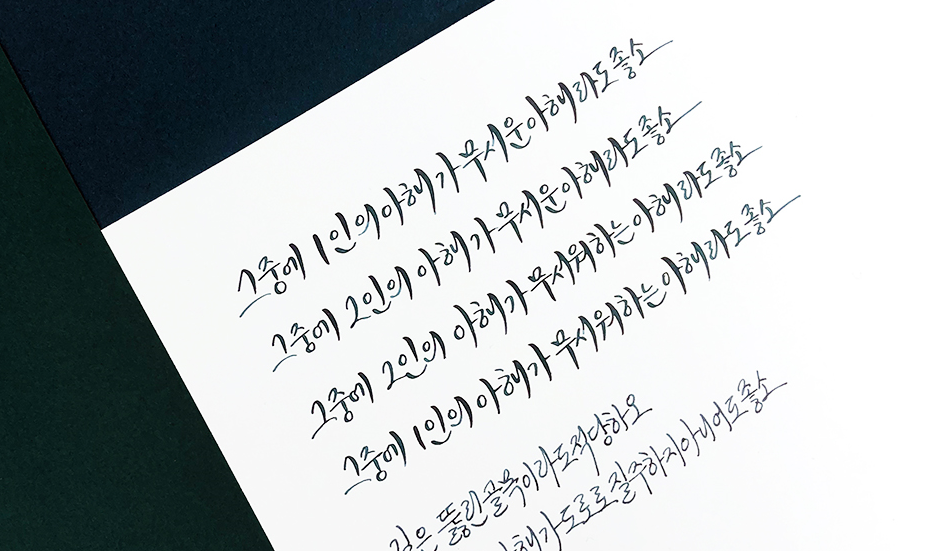 그중에 1인의아해가무서운아해라도좋소
그중에 2인의 아해가무서운아해라도좋소
그중에 2인의 아해가무서워하는아해라도좋소
그중에 1인의 아해가무서워하는아해라도좋소
길은 뚫린골목이라도적당하오
해가도로로질주하지아니어도좋소